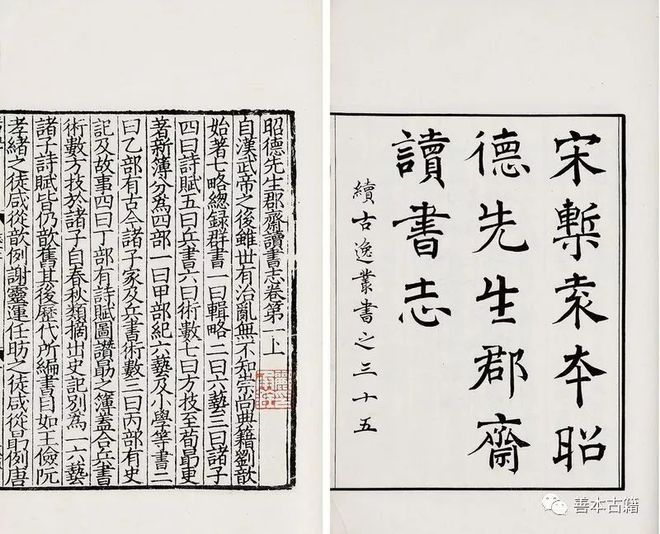 宋槧袁本昭
德先生郡齋
讀書志
續古逸叢書之三十五
昭德先生郡齋讀書志卷第一上
自漢武帝之後雖世有治亂無不知崇尚典籍劉歆
始著七略總録群書一曰輯略二曰六藝三曰諸子
四曰詩賦五曰兵書六曰術數七曰方技至荀勗更
著新簿分為四部一曰甲部紀六藝及小學等書二
曰乙部有古今諸子家及兵書術數三曰丙部有史
記及故事四曰丁部有詩賦圖讚勗之簿蓋合兵書
術數方技於諸子自春秋類摘出史記別為一六藝
諸子詩賦皆仍歆舊其後歷代所編書目如王儉阮
孝緒之徒咸從歆例謝靈運任昉之徒咸從勗例唐
善本古籍